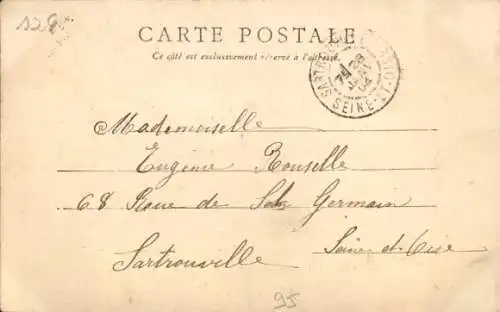 1284
CARTE POSTALE
Ce côté est exclusivement réservé à l'adresse.
SARTROUVILLE SEINE-ET-OISE
28
JANV
04
Mademoiselle
Eugénie Rouselle
68 Rue de St Germain
Sartrouville
Seine-et-Oise
95